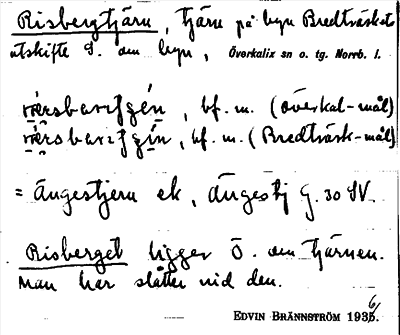 Risbergtjärn, tjärn på byn Bredträskets
utskifte S. om byn, Överkalix sn o. tg. Norrb. l.
bf. m. (överkal-mål)
bf. m. (Bredträsk-mål)
= Ängestjern ek, Ängestj G. 30 SV.
Risberget ligger Ö. om tjärnen.
Man har slåtter vid den.
EDVIN BRÄNNSTRÖM 1936.